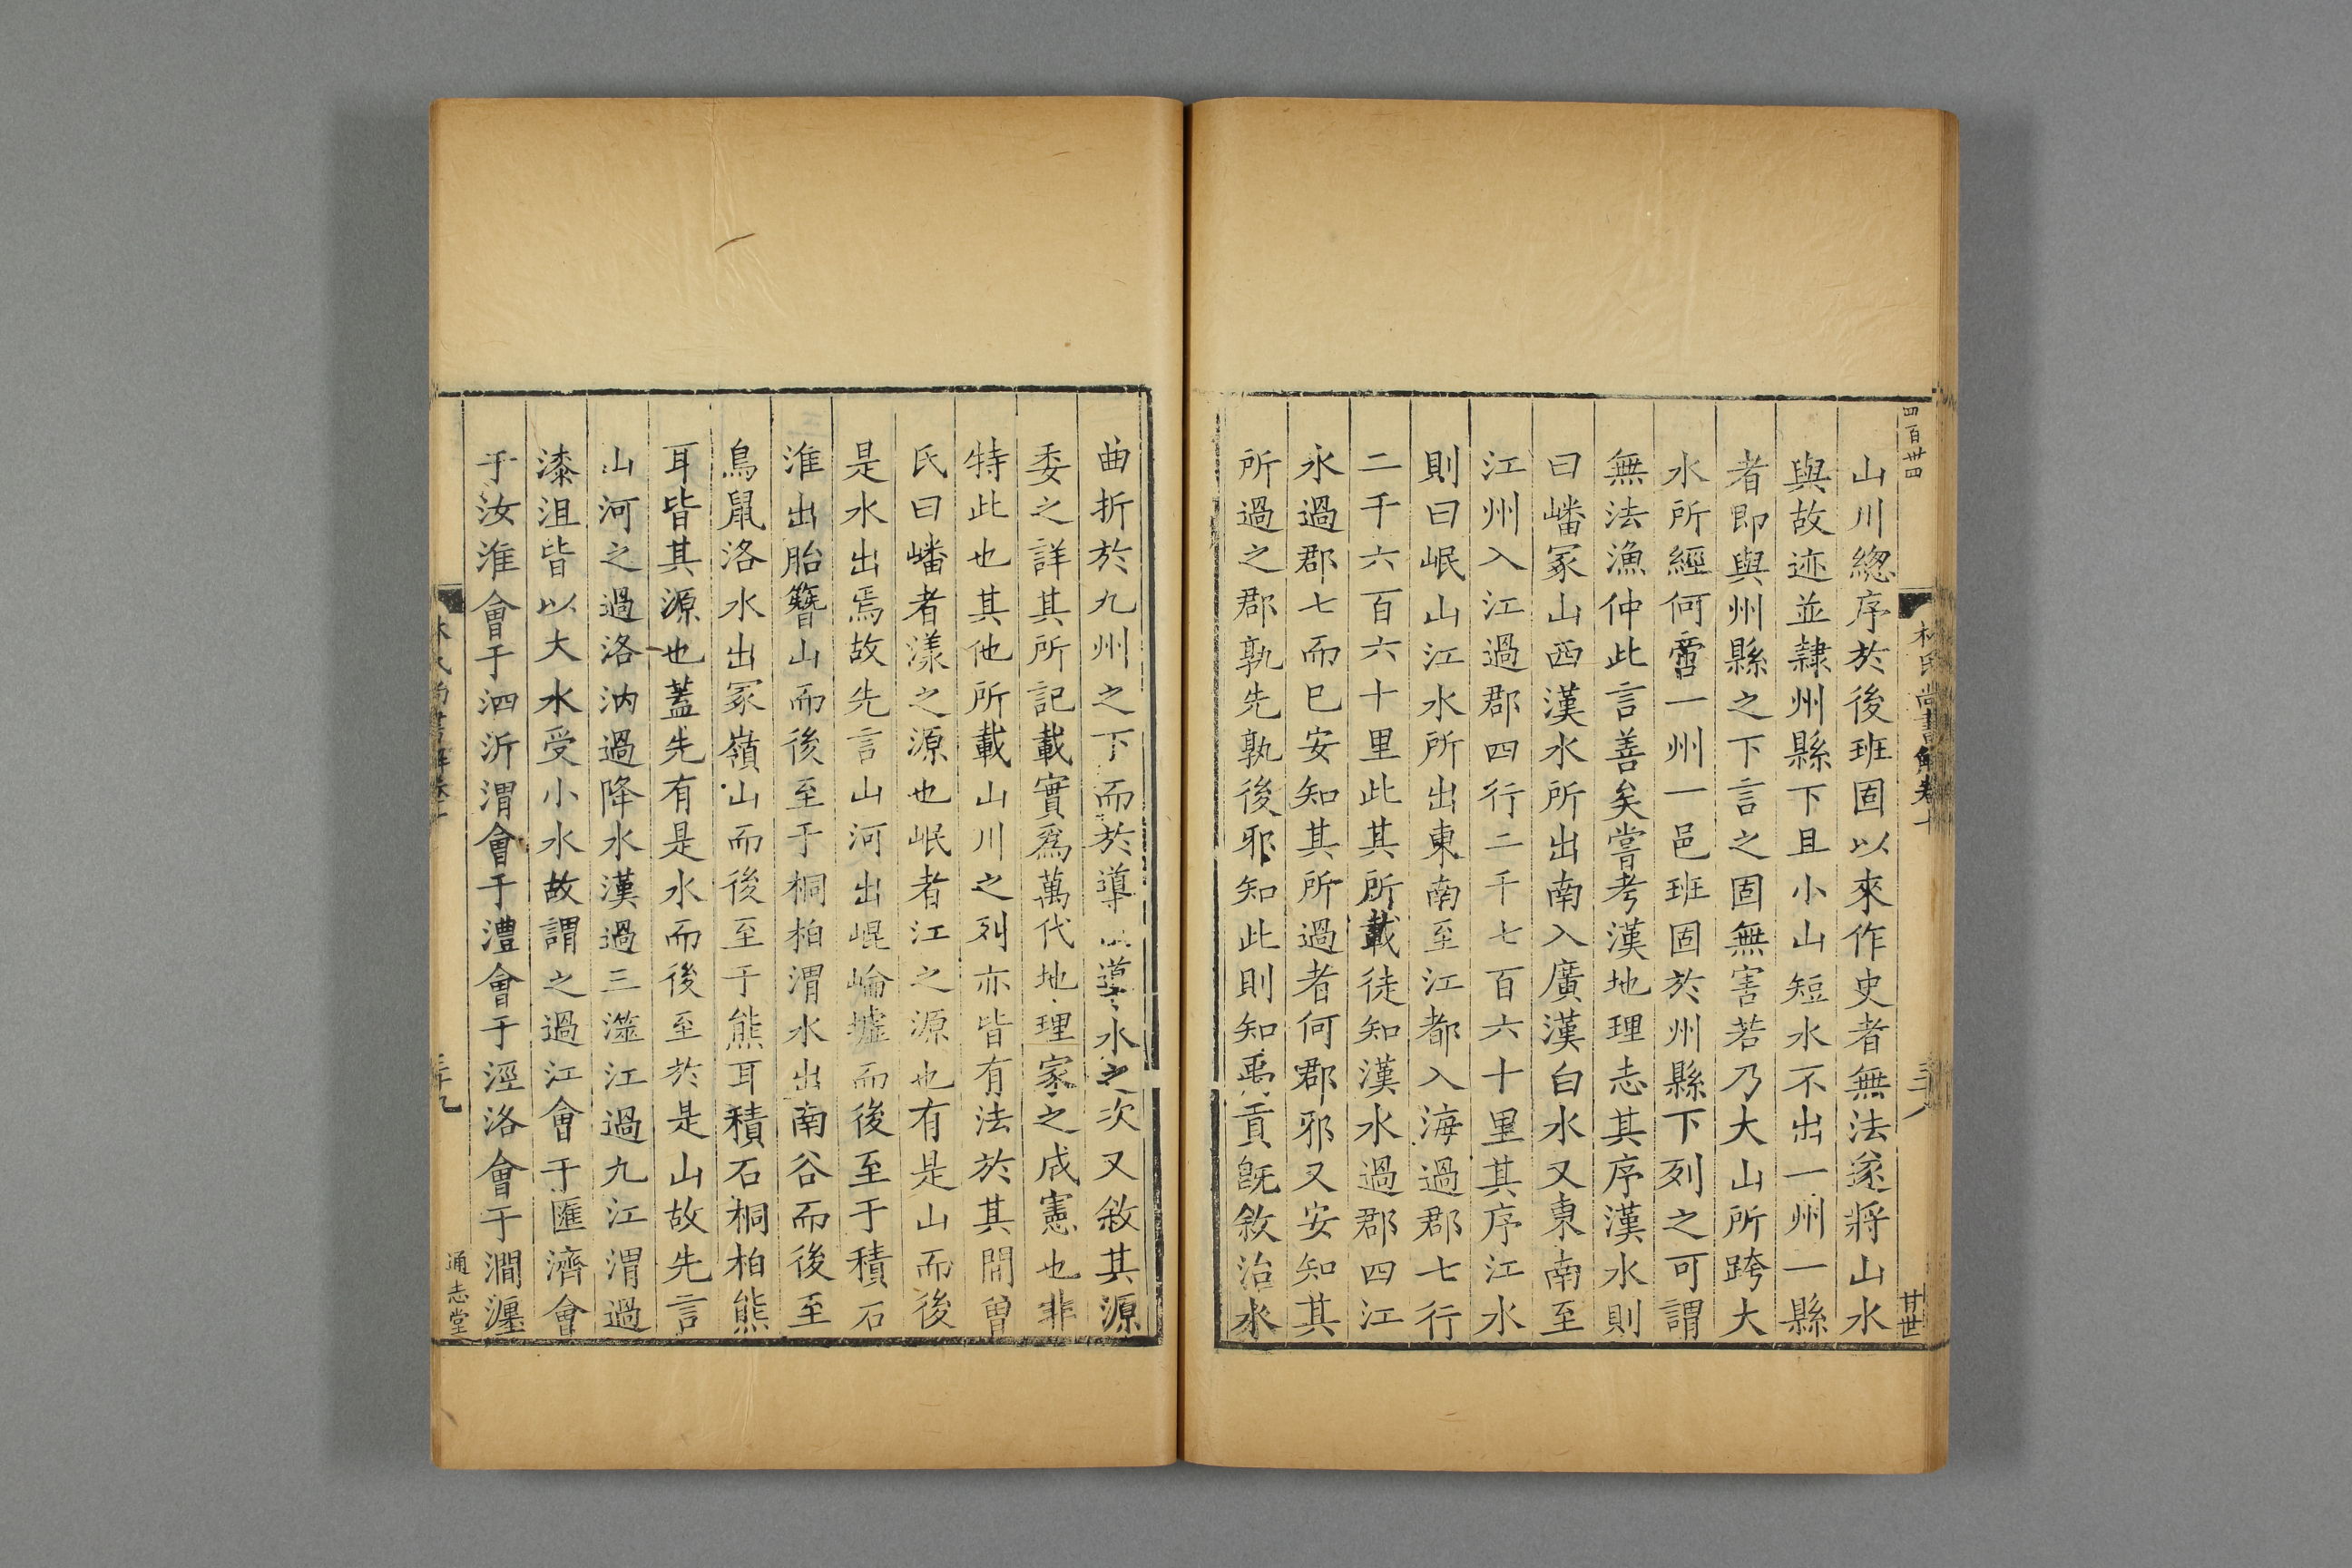 四百卌四
山川總序於後班固以來作史者無法遂將山水
與故迹並隷州縣下且小山短水不出一州一縣
者即與州縣之下言之固無害若乃大山所跨大
水所經何啻一州一邑班固於州縣下列之可謂
無法漁仲此言善矣嘗考漢地理志其序漢水則
曰嶓冢山西漢水所出南入廣漢白水又東南至
江州入江過郡四行二千七百六十里其序江水
則曰岷山江水所出東南至江都入海過郡七行
二千六百六十里此其所載徒知漢水過郡四江
水過郡七而已安知其所過者何郡邪又安知其
所過之郡孰先孰後邪知此則知禹貢旣敘治水
林氏尚書解卷十
三十八
廿世
曲折於九州之下而於導山導水之次又敘其源
委之詳其所記載實爲萬代地理家之成憲也非
特此也其他所載山川之列亦皆有法於其間曽
氏曰嶓者漾之源也岷者江之源也有是山而後
是水出焉故先言山河出崐崘墟而後至于積石
淮出胎簪山而後至于桐柏渭水出南谷而後至
鳥鼠洛水出冢嶺山而後至于熊耳積石桐柏熊
耳皆其源也蓋先有是水而後至於是山故先言
山河之過洛汭過降水漢過三澨江過九江渭過
漆沮皆以大水受小水故謂之過江會于匯濟會
于汝淮會于泗沂渭會于澧會于涇洛會于澗瀍
三十九
通志堂